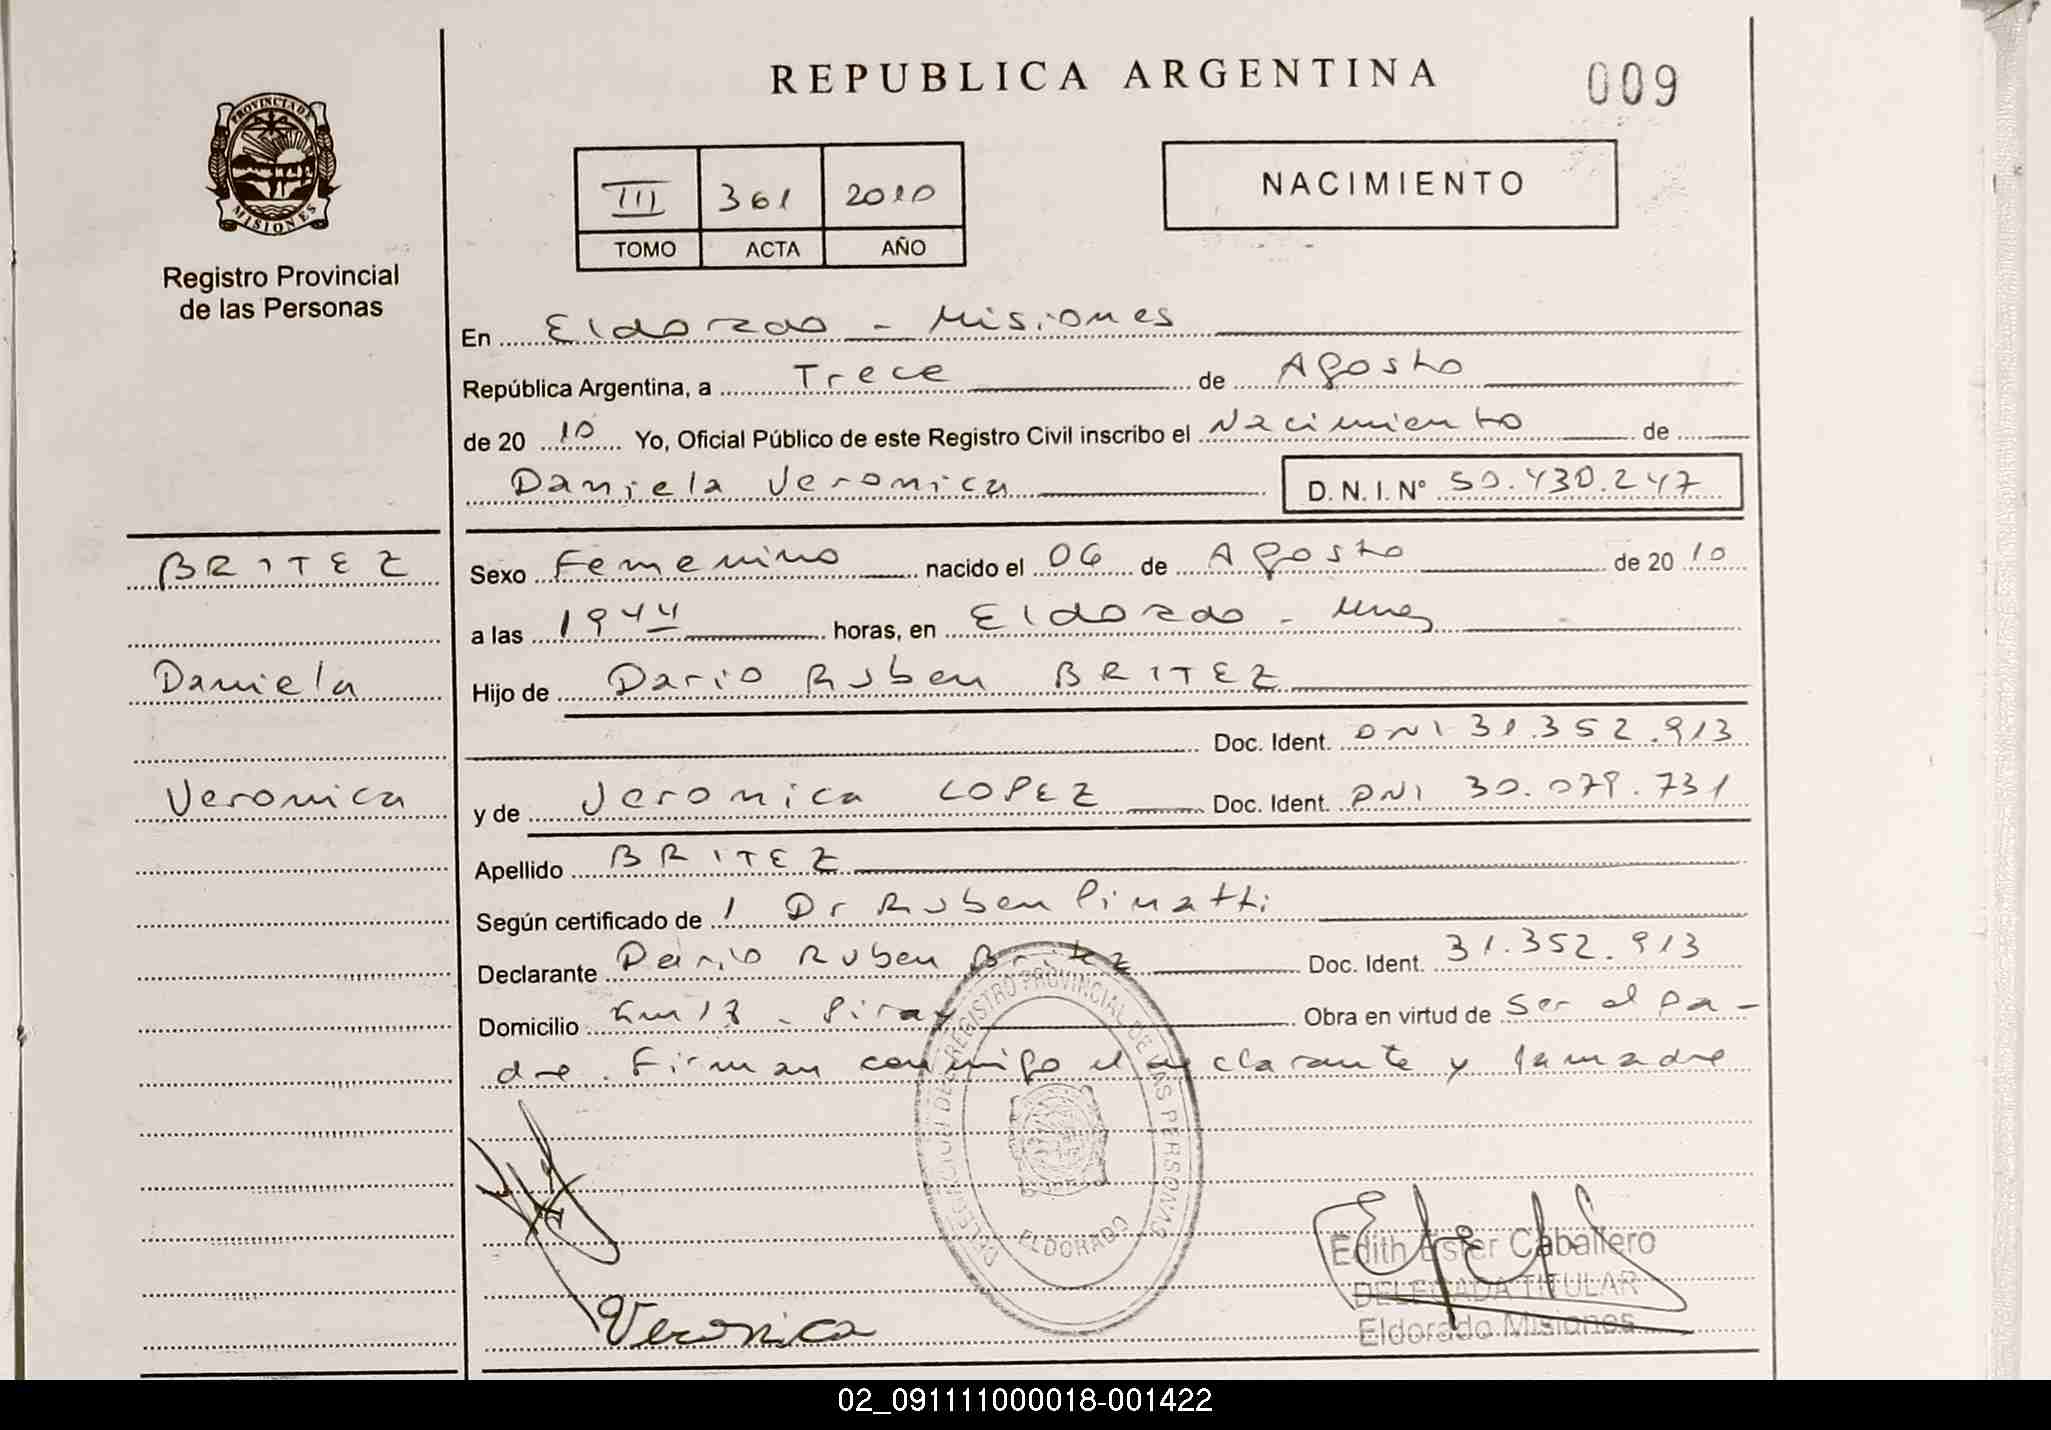 REPUBLICA ARGENTINA
009
PROVINCIA DE
MISIONES
Registro Provincial
de las Personas
III 361 2010
TOMO ACTA AÑO
NACIMIENTO
En Eldorado - Misiones
República Argentina, a Trece de Agosto
de 20 10 Yo, Oficial Público de este Registro Civil inscribo el Nacimiento de
Daniela Veronica D.N.I.N° 50.430.247
BRITEZ
Daniela
Veronica
Sexo Femenino nacido el 06 de Agosto de 20 10
a las 1944 horas, en Eldorado - Mnes
Hijo de Dario Ruben BRITEZ
Doc. Ident. DNI 31.352.913
y de Veronica LOPEZ Doc. Ident. DNI 30.079.731
Apellido BRITEZ
Según certificado de 1 Dr Ruben Pinatti
Declarante Dario Ruben Britez Doc. Ident. 31.352.913
Domicilio Km 13 - Piray Obra en virtud de Ser el pa-
dre. Firman conmigo el declarante y la madre
DELEGACION DEL REGISTRO PROVINCIAL DE LAS PERSONAS
ELDORADO
Veronica
Edith Ester Caballero
DELEGADA TITULAR
Eldorado Misiones
02_091111000018-001422